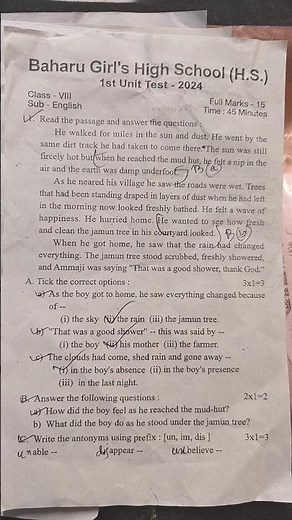 Baharu Girl's High School (H.S.)
1st Unit Test - 2024
Class - VIII
Full Marks - 15
Sub - English
Time : 45 Minutes
1. Read the passage and answer the questions :
He walked for miles in the sun and dust. He went by the
same dirt track he had taken to come there. The sun was still
fircely hot but when he reached the mud hut, he felt a nip in the
air and the earth was damp underfoot. B (a)
As he neared his village he saw the roads were wet. Trees
that had been standing draped in layers of dust when he had left
in the morning now looked freshly bathed. He felt a wave of
happiness. He hurried home. He wanted to see how fresh
and clean the jamun tree in his courtyard looked. B (b)
When he got home, he saw that the rain had changed
everything. The jamun tree stood scrubbed, freshly showered,
and Ammaji was saying "That was a good shower, thank God."
A. Tick the correct options : 3x1=3
a) As the boy got to home, he saw everything changed because
of --
(i) the sky (ii) the rain (iii) the jamun tree.
b) "That was a good shower" -- this was said by --
(i) the boy (ii) his mother (iii) the farmer.
c) The clouds had come, shed rain and gone away --
(i) in the boy's absence (ii) in the boy's presence
(iii) in the last night.
B. Answer the following questions : 2x1=2
a) How did the boy feel as he reached the mud-hut?
b) What did the boy do as he stood under the jamun tree?
C. Write the antonyms using prefix : [un, im, dis ] 3x1=3
unable -- disappear -- unbelieve --